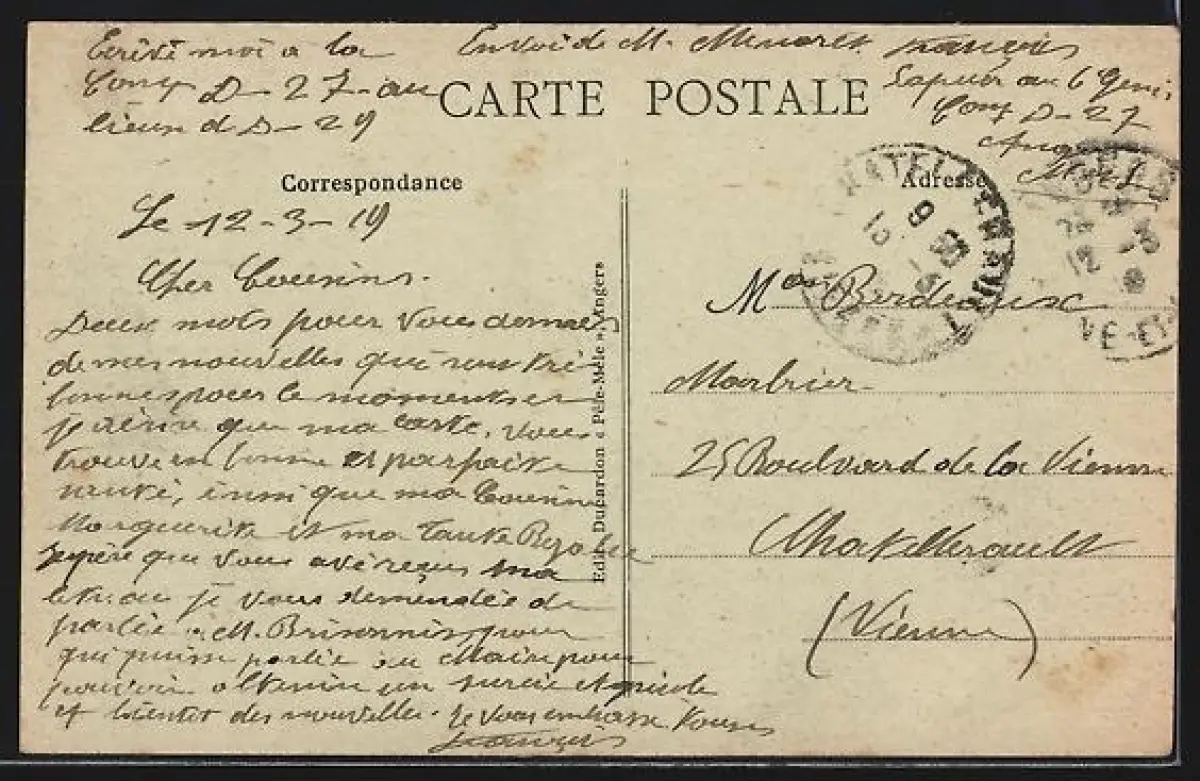 Ecrité moi a la
Comp D-27-au
lieux d D-29
Envoi de M. Menaret françois
Sapeur au 6 Geni,
Comp D-27
Angers
CARTE POSTALE
Correspondance
Adresse
Le 12-3-19
Cher Cousins.
Deux mots pour vous donner
de mes nouvelles qui sont tré
bonnes pour le moment
je aime que ma carte, vous
trouve en bonne et parfaite
santé, insi que ma Cousine
Marguerite et ma Tante
Jespère que vous avé reçus ma
letre ou je vous demendée de
parlée a M. Brisonnis, pour
qui puisse parlée au Maire pour
pouvoir obtenire un surcie Agricole
et bientot des nouvelles. Je vous embrasse Tous
françois
Edit. Ducardon « Pêle-Mêle », Angers
Mon Berdeaux
Marbrier
25 Boulvard de la Vienne
Chatellerault
(Vienne)